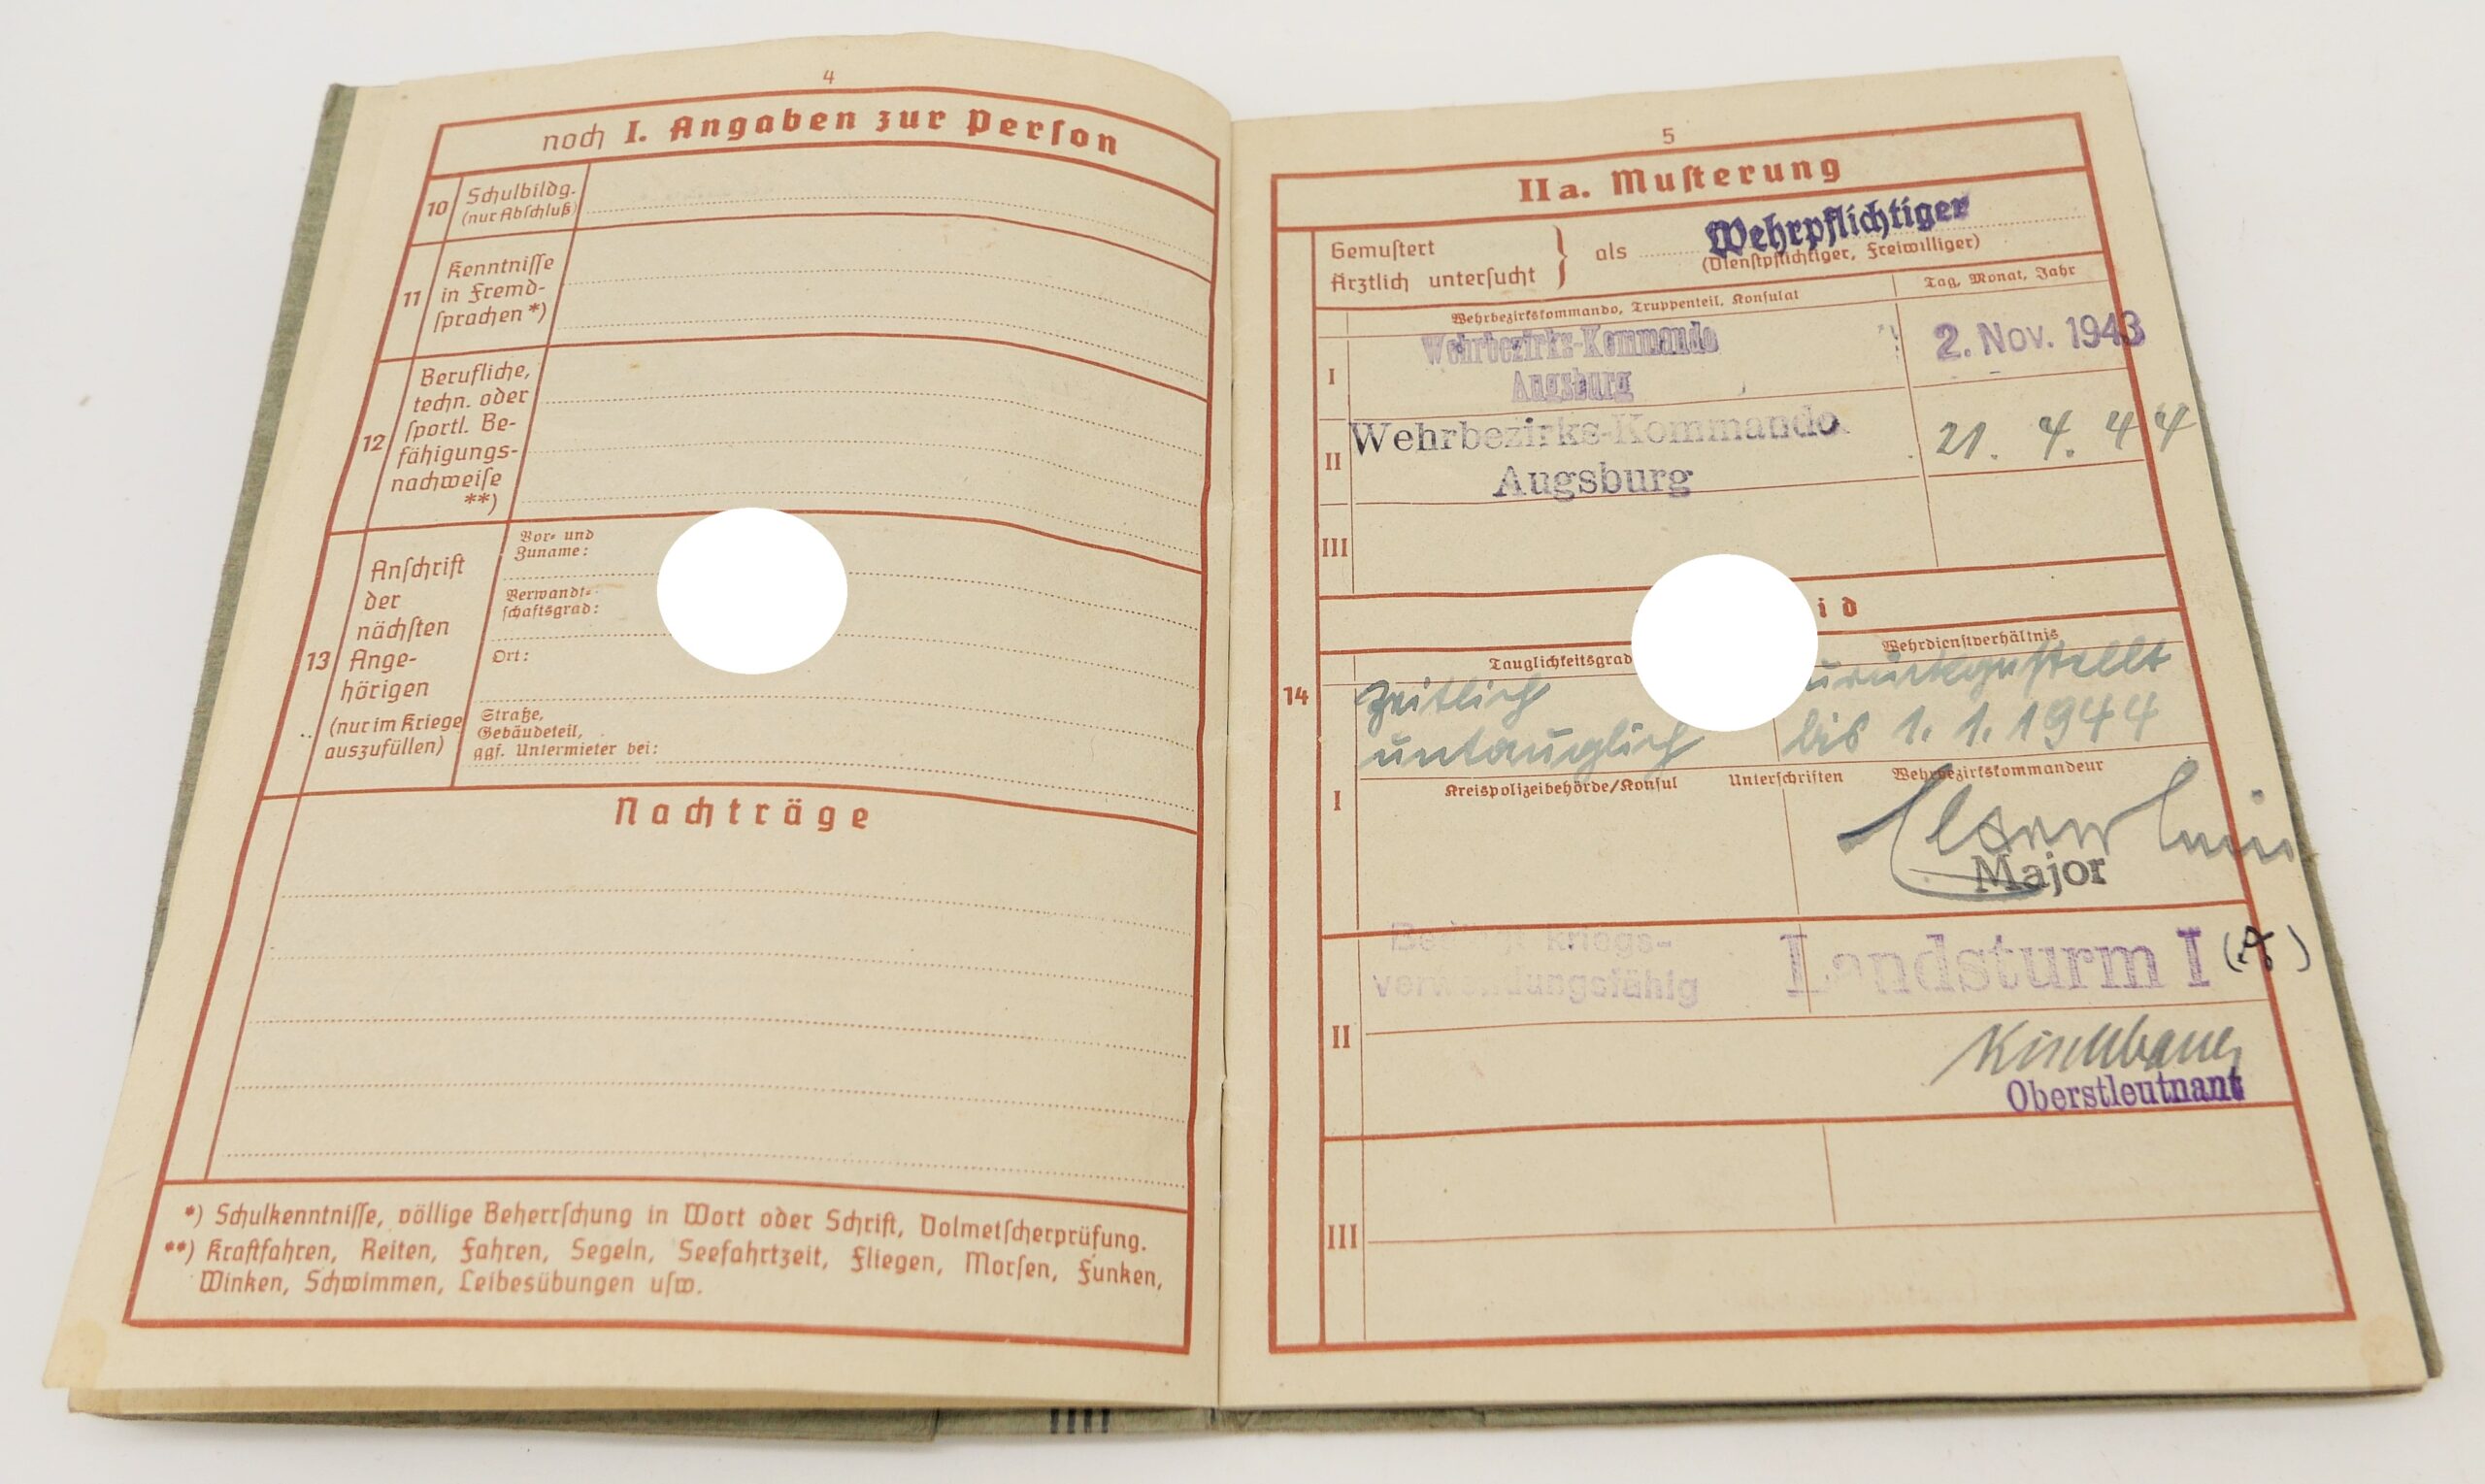 4
noch I. Angaben zur Perſon
10
Schulbildg.
(nur Abſchluß)
11
Kenntniſſe
in Fremd-
ſprachen *)
12
Berufliche,
techn. oder
ſportl. Be-
fähigungs-
nachweiſe
**)
13
Anſchrift
der
nächſten
Ange-
hörigen
(nur im Kriege
auszufüllen)
Vor- und
Zuname:
Verwandt-
ſchaftsgrad:
Ort:
Straße,
Gebäudeteil,
ggf. Untermieter bei:
Nachträge
*) Schulkenntniſſe, völlige Beherrſchung in Wort oder Schrift, Dolmetſcherprüfung.
**) Kraftfahren, Reiten, Fahren, Segeln, Seefahrtzeit, Fliegen, Morſen, Funken,
Winken, Schwimmen, Leibesübungen uſw.
5
IIa. Muſterung
Gemuſtert
Ärztlich unterſucht
als Wehrpflichtiger
(Dienſtpflichtiger, Freiwilliger)
Wehrbezirkskommando, Truppenteil, Konſulat
Tag, Monat, Jahr
I
Wehrbezirks-Kommando
Augsburg
2. Nov. 1943
II
Wehrbezirks-Kommando
Augsburg
21. 4. 44
III
id
14
Tauglichkeitsgrad
Wehrdienſtverhältnis
I
zeitlich
untauglich
urückgestellt
bis 1. 1. 1944
Kreispolizeibehörde/Konſul
Unterſchriften
Wehrbezirkskommandeur
Major
II
kriegs-
verwendungsfähig
Landsturm I
Oberstleutnant
III